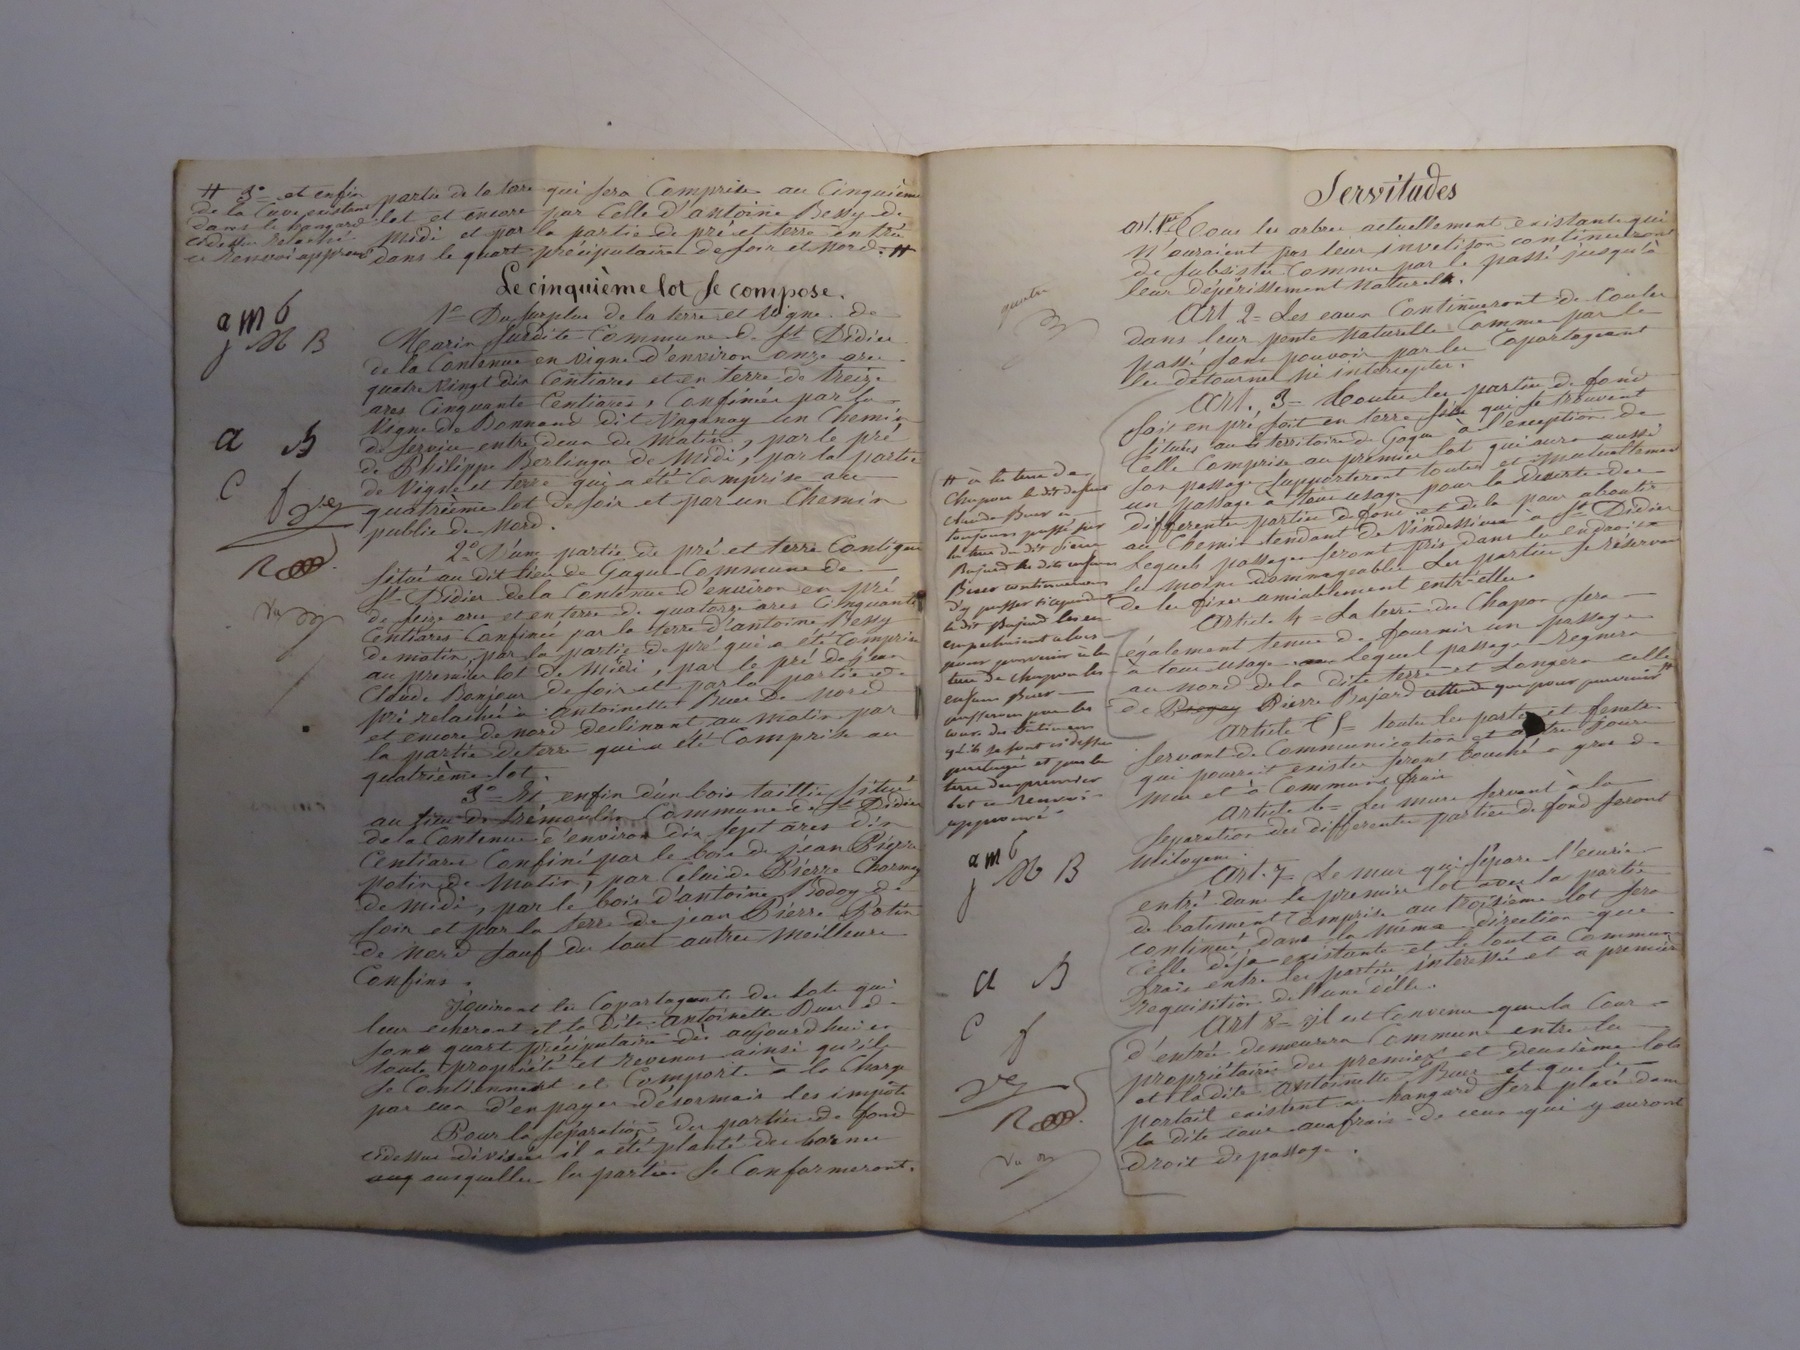 # 3° et enfin
de la Cuve existant
dans le hangard
cidessus relaché
ce renvoi approuvé
partie de la terre qui sera Comprise au Cinquième
lot et encore par Celle d'antoine Bessy de
Midi et par la partie de pré et terre entrée
dans le quart préciputaire de soir et Nord. #
Le cinquième lot se compose.
1° Du surplus de la terre et vigne de
Marin susdite Commune de St Didier
de la Contenue en vigne d'environ onze ares
quatre vingt dix Centiares et en terre de treize
ares Cinquante Centiares, Confinée par la
vigne de Bonnand dit un Chemin
de service entre deux de Matin, par le pré
de Philippe Berlinga de Midi, par la partie
de Vigne et terre qui a été Comprise au
quatrième lot de soir et par un Chemin
public de Nord.
2° D'une partie de pré et terre Contigue
situé au dit lieu de Gagu Commune de
St Didier de la Contenue d'environ en pré
de seize ares et en terre de quatorze ares Cinquante
Centiares Confinée par la terre d'antoine Bessy
de matin, par la partie de pré qui a été Comprise
au premier lot de Midi, par le pré de jean
Claude Bonjour de soir et par la partie de
pré relachée à antoinette Buer de Nord
et encore de nord déclinant au Matin par
la partie de terre qui a été Comprise au
quatrième lot.
3° Et enfin d'un bois taillis situé
au lieu de trémoulin Commune de St Didier
de la Contenue d'environ dix sept ares dix
Centiares Confiné par le bois de jean Pierre
potin de Matin, par Celui de Pierre Charmy
de Midi, par le bois d'antoine Bodoy de
soir et par la terre de jean Pierre Potin
de Nord sauf du tout autres Meilleurs
Confins.
Jouiront les Copartageants des lots qui
leur écherront et la dite antoinette Buer de
son quart préciputaire dès aujourd'hui en
toute propriété et revenus ainsi qu'ils
se Contiennent et Comporte à la Charge
par eux d'en payer désormais les impôts
Pour la séparation des parties de fond
cidessus divisées il a été planté des bornes
auxquelles les parties se Conformeront.
a m b
j M B
a B
C f
R
Vu
Servitudes
art. 1er Tous les arbres actuellement existants qui
n'auraient pas leur invetison continueront
de subsister Comme par le passé jusqu'à
leur dépérissement Naturel.
Art 2 = Les eaux Continueront de Couler
dans leur pente Naturelle Comme par le
passé sans pouvoir par les Copartageants
les détourner ni intercepter.
Art. 3 = Toutes les parties de fond
soit en pré soit en terre qui se trouvent
situés au territoire de Gagu à l'exception de
Celle Comprise au premier lot qui aura aussi
son passage supporteront toutes et Mutuellement
un passage à tous usage pour la déserte des
différentes parties de fond et de la pour aboutir
au Chemin tendant de Vindessieux à St Didier
Lequels passages seront pris dans les endroits
les moins dommageables Les parties se réservant
de les fixer amiablement entr-elles.
Article 4 = La terre du Chapon sera
également tenue de fournir un passage
à tous usage lequel passage règnera
au nord de la dite terre et Longera celle
de Pierre Bujard attendu que pour parvenir #
Article 5 = toutes les portes et fenêtres
servant de Communication et autres jours
qui pourrait exister seront bouchés à gros de
Mur et à Communs frais
Article 6 = Les murs servant à la
séparation des différentes parties de fond seront
Mitoyens.
Art. 7 = Le mur qui sépare l'écurie
entré dans le premier lot avec la partie
de batiment Comprise au troisième lot sera
continué dans la même direction que
Celle déjà existante et le tout à Communs
frais entre les parties intéressées et a première
Requisition de l'une d'elle.
Art 8 = Il est Convenu que la Cour
d'entrée demeurera Commune entre les
propriétaires des premier et deuxième lots
et la dite Antoinette Buer et que le
portail existant au hangard sera placé dans
la dite cour aux frais de ceux qui y auront
Droit de passage.
# à la terre de
Chapon le dit défunt
Claude Buer a
toujours passé par
la terre du dit sieur
Bujard les dits enfans
Buer continueront
d'y passer si cependant
le dit Bujard les en
empêchaient alors
pour parvenir à la
terre de chapon les
enfans Buer
passeront par la
cour des batiments
qu'ils se sont ci dessus
partagés et par la
terre du premier
lot ce renvoi
approuvé
a m b
j M B
a B
C f
R
Vu